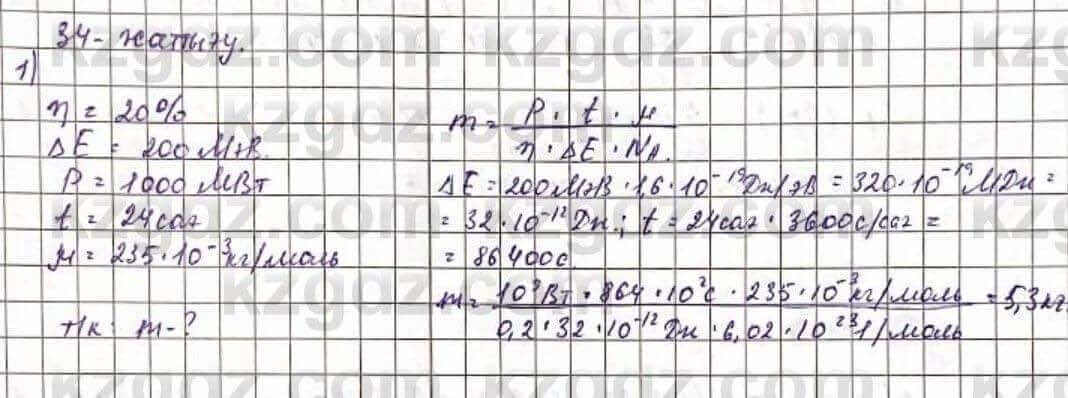 34-жаттығу.
1)
η = 20%
ΔE = 200 МэВ.
P = 1000 МВт
t = 24 сағ
μ = 235·10⁻³ кг/моль
Т/к: m-?
m = P · t · μ / η · ΔE · N_A.
ΔE = 200 МэВ · 1,6 · 10⁻¹⁹ Дж/эВ = 320·10⁻¹⁹ МДж =
= 32·10⁻¹² Дж.; t = 24 сағ · 3600 с/сағ =
= 86400 с.
m = 10⁹ Вт · 864 · 10² с · 235 · 10⁻³ кг/моль / 0,2 · 32 · 10⁻¹² Дж · 6,02 · 10²³ 1/моль = 5,3 кг.
kzgdz.com